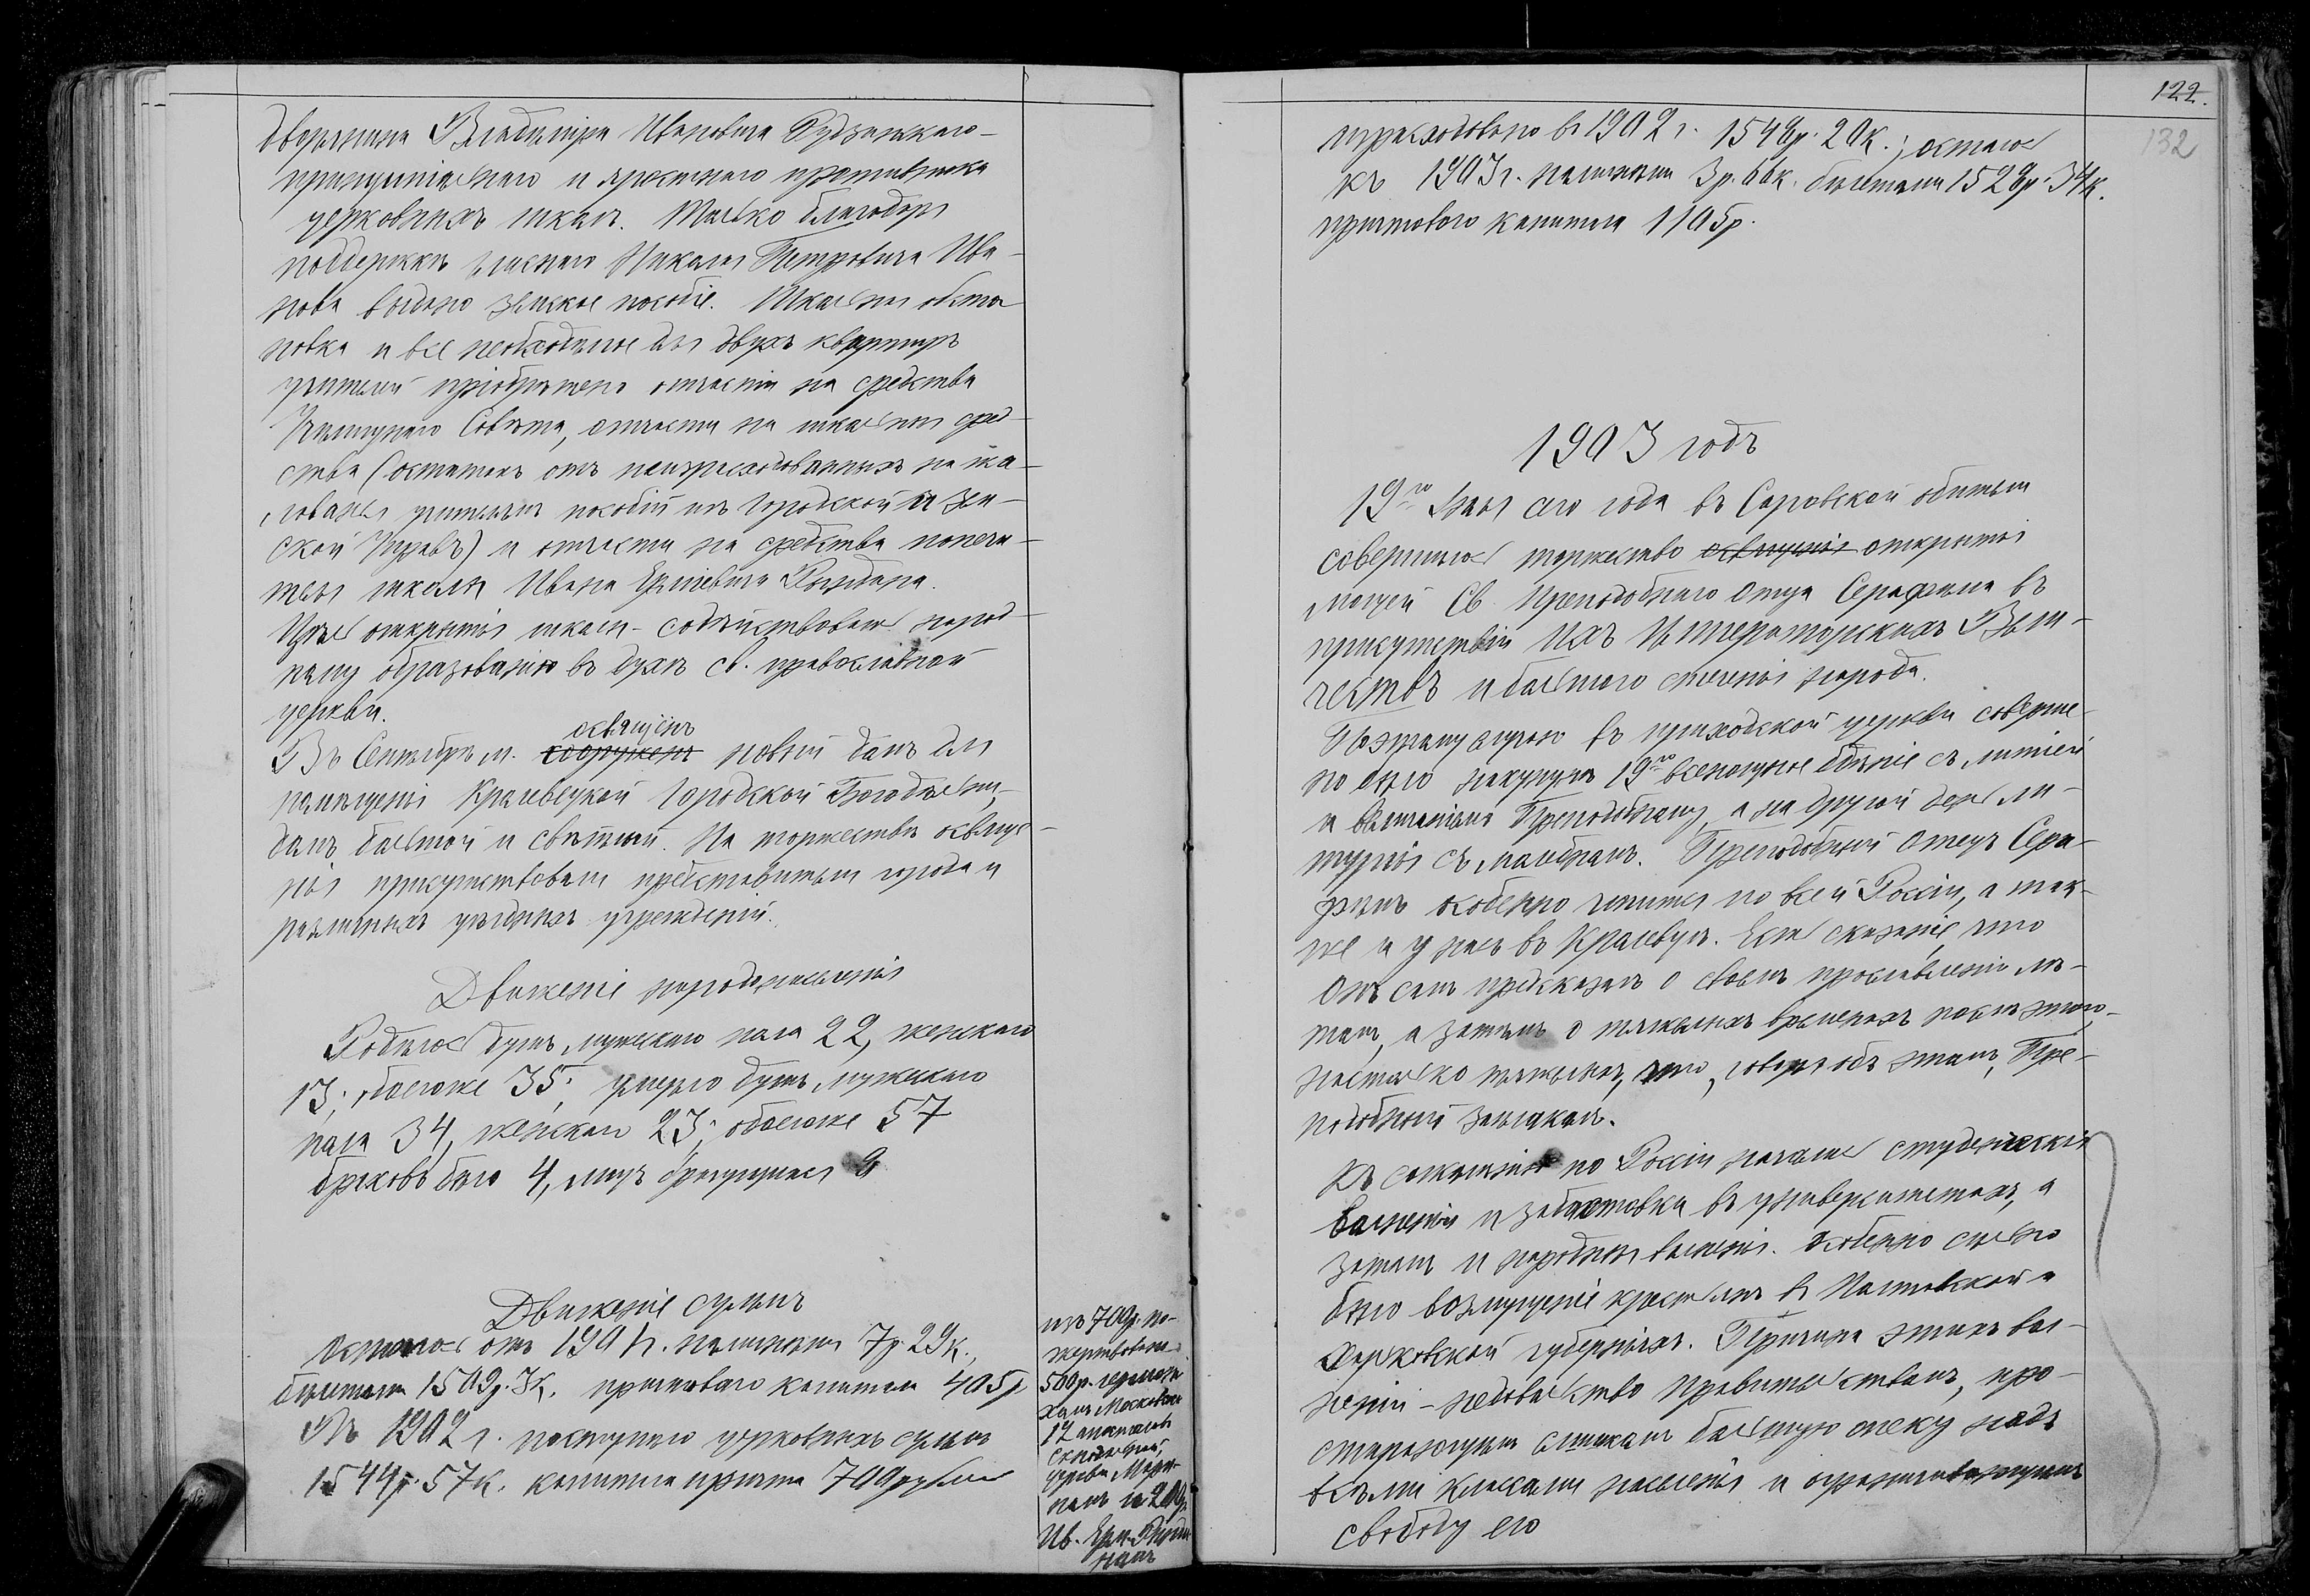 дворянина Владиміра Ивановича Рудзинскаго –
принципіальнаго и яростнаго противника
церковныхъ школъ. Только благодаря
поддержкѣ гласнаго Николая Петровича Ива-
нова выдано земское пособіе. Школьная обста
новка и все необходимое для двухъ квартиръ
учителей пріобрѣтено отчасти на средства
Училищнаго Совѣта, отчасти на школьныя сред-
ства (остатокъ отъ неизрасходованныхъ на жа-
лованья учителямъ пособій изъ Городской и Зем-
ской Управъ) и отчасти на средства попечи-
теля школы Ивана
Цѣль открытія школы – содѣйствовать народ-
ному образованію въ духѣ св. православной
церкви.
освященъ
Въ Сентябрѣ м. сооруженъ новый домъ для
помѣщенія Кролевецкой Городской Богодѣльни,
домъ большой и свѣтлый. На торжествѣ освяще-
нія присутствовали представители города и
различныхъ уѣздныхъ учрежденій.
Движеніе народонаселенія
Родилось душъ мужескаго пола 22, женскаго
13; обоегоже 35; умерло душъ мужескаго
пола 34, женскаго 23; обоегоже 57
браковъ было 4, лицъ брачущихся
Движеніе суммъ
Осталось отъ 1901 г. наличными 7 р. 29 к.,
билетами 1509 р. 3 к. причтоваго капитала 405 р
Въ 1902 г. поступило церковныхъ суммъ
1544 р. 57 к. капитала причта 700 рублей
изъ 700 р. по-
жертвовано
500 р.
Московск.
церкви
и 200 р.
Ив.
122.
132
израсходовано въ 1902 г. 1548 р. 20 к.; осталось
къ 1903 г. наличными 3 р. 66 к. билетами 1528 р. 34 к.
причтового капитала 1105 р.
1903 годъ
19го Іюля сего года въ Саровской обители
совершилось торжество освященія открытія
мощей Св. Преподобнаго Отца Серафима въ
присутствіи Ихъ Императорскихъ Вели-
чествъ и большого стеченія народа.
По этому случаю въ приходской церкви соверше-
но было накунунѣ 19го всенощное бдѣніе съ литіей
и величаніемъ Преподобному, а на другой день ли-
тургія съ молебномъ. Преподобный Отецъ Сера-
фимъ особенно чтится по всей Россіи, а так-
же и у насъ въ Кролевцѣ. Есть сказаніе, что
Онъ самъ предсказалъ о своемъ прославленіи лѣ-
томъ, а затѣмъ о тяжелыхъ временахъ послѣ этого,
настолько тяжелыхъ, что, говоря объ этомъ, Пре-
подобный заплакалъ.
Къ сожалѣнію по Россіи начались студенческія
волненія и забастовки въ университетахъ, а
затѣмъ и народныя волненія. Особенно сильно
было возмущеніе крестьянъ въ Полтавской и
Харьковской губерніяхъ. Причина этихъ вол-
неній – недовольство Правительствомъ, про-
стирающимъ слишкомъ большую опеку надъ
всѣми классами населенія и ограничивающимъ
свободу его